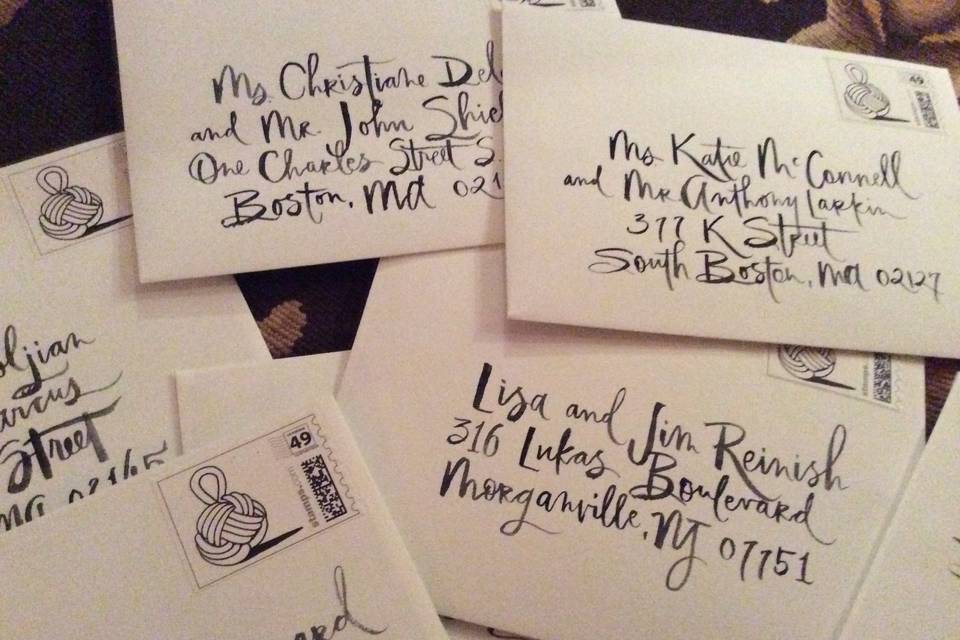 Ms. Christiane
and Mr. John
One Charles Street S.
Boston, Ma 021
49
Ms Katie McConnell
and Mr Anthony Larkin
377 K Street
South Boston, Ma 02127
Street
49
stamps.com
Lisa and Jim Reinish
316 Lukas Boulevard
Morganville, NJ 07751
stamps.com